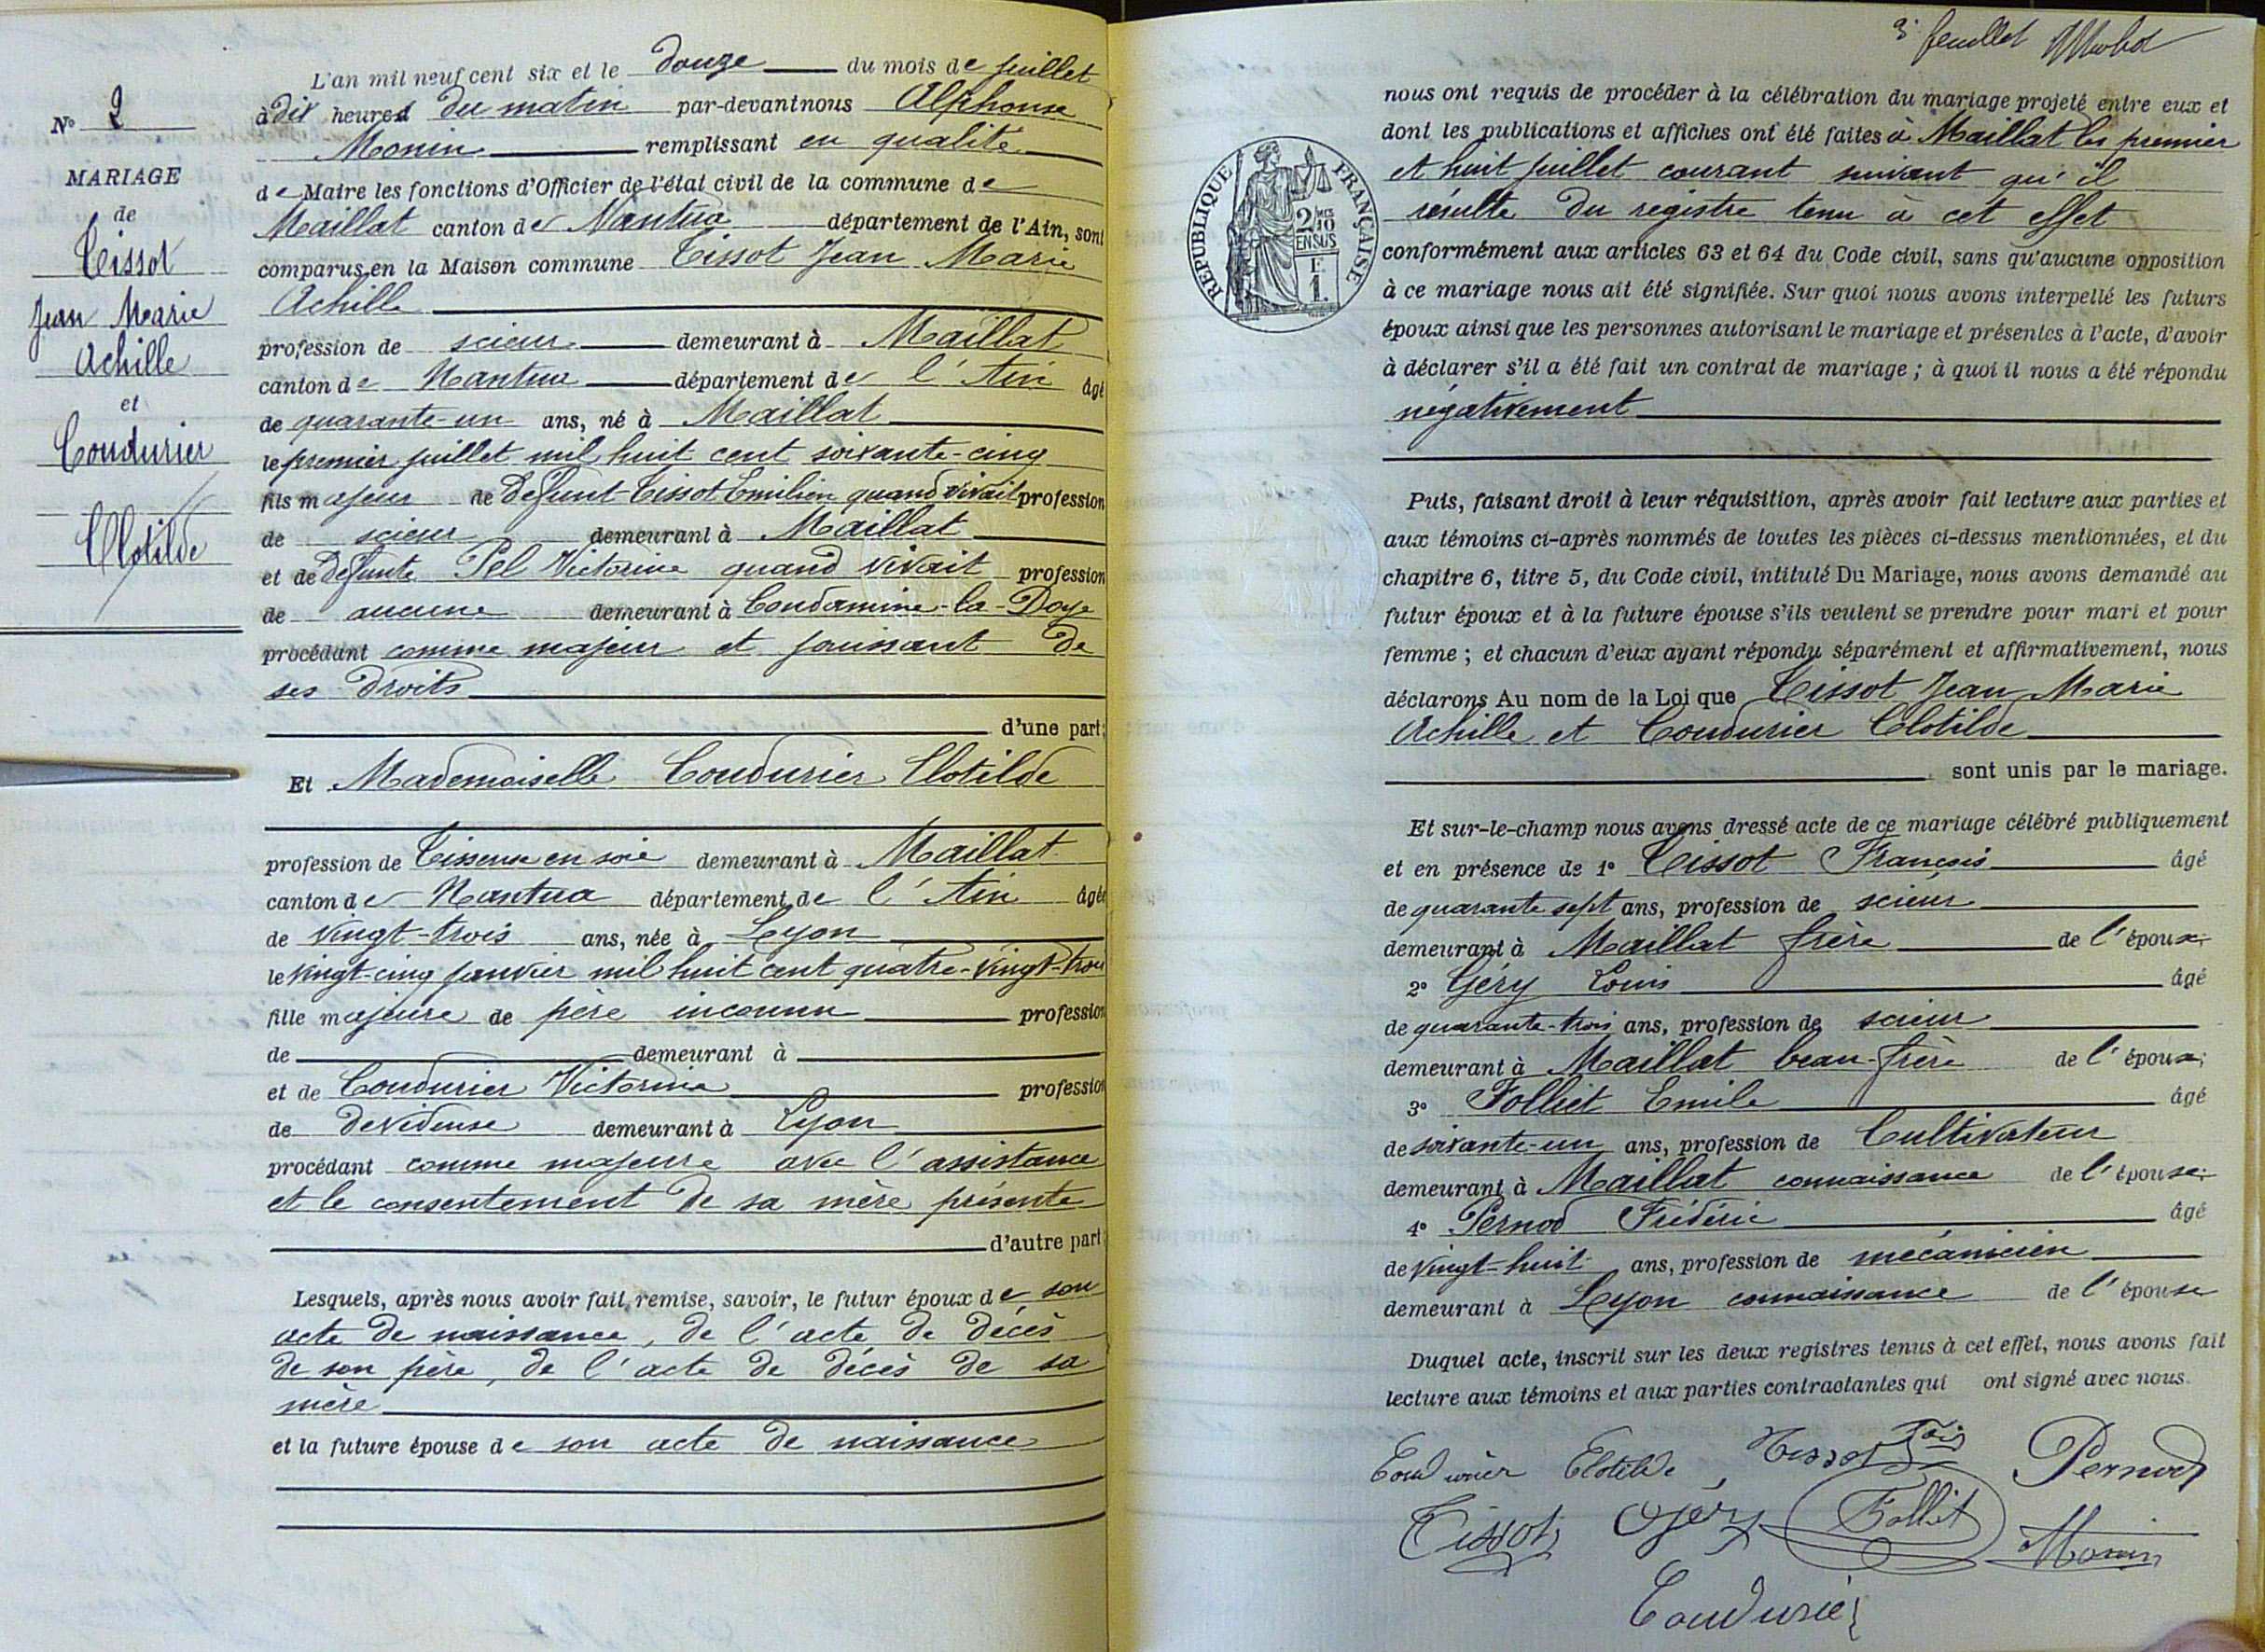 N° 2
MARIAGE
de
Tissot
Jean Marie
Achille
et
Coudurier
Clotilde
L'an mil neuf cent six et le douze du mois de juillet
à dix heures du matin par-devant nous Alphonse
Monin remplissant en qualité
de Maire les fonctions d'Officier de l'état civil de la commune de
Maillat canton de Nantua département de l'Ain, sont
comparus en la Maison commune Tissot Jean Marie
Achille
profession de scieur demeurant à Maillat
canton de Nantua département de l'Ain âgé
de quarante-un ans, né à Maillat
le premier juillet mil huit cent soixante-cinq
fils majeur de défunt Tissot Emilien quand vivait profession
de scieur demeurant à Maillat
et de défunte Pel Victorine quand vivait profession
de aucune demeurant à Condamine-la-Doye
procédant comme majeur et jouissant de
ses droits
d'une part;
Et Mademoiselle Coudurier Clotilde
profession de Tisseuse en soie demeurant à Maillat
canton de Nantua département de l'Ain âgée
de vingt-trois ans, née à Lyon
le vingt-cinq janvier mil huit cent quatre-vingt-trois
fille majeure de père inconnu profession
de demeurant à
et de Coudurier Victorine profession
de dévideuse demeurant à Lyon
procédant comme majeure avec l'assistance
et le consentement de sa mère présente
d'autre part
Lesquels, après nous avoir fait remise, savoir, le futur époux de son
acte de naissance, de l'acte de décès
de son père, de l'acte de décès de sa
mère
et la future épouse de son acte de naissance
3e feuillet
nous ont requis de procéder à la célébration du mariage projeté entre eux et
dont les publications et affiches ont été faites à Maillat les premier
et huit juillet courant suivant qu'il
résulte du registre tenu à cet effet
RÉPUBLIQUE FRANÇAISE
2/10
EN SUS
1F.
conformément aux articles 63 et 64 du Code civil, sans qu'aucune opposition
à ce mariage nous ait été signifiée. Sur quoi nous avons interpellé les futurs
époux ainsi que les personnes autorisant le mariage et présentes à l'acte, d'avoir
à déclarer s'il a été fait un contrat de mariage ; à quoi il nous a été répondu
négativement
Puis, faisant droit à leur réquisition, après avoir fait lecture aux parties et
aux témoins ci-après nommés de toutes les pièces ci-dessus mentionnées, et du
chapitre 6, titre 5, du Code civil, intitulé Du Mariage, nous avons demandé au
futur époux et à la future épouse s'ils veulent se prendre pour mari et pour
femme ; et chacun d'eux ayant répondu séparément et affirmativement, nous
déclarons Au nom de la Loi que Tissot Jean Marie
Achille et Coudurier Clotilde
sont unis par le mariage.
Et sur-le-champ nous avons dressé acte de ce mariage célébré publiquement
et en présence de 1° Tissot François âgé
de quarante sept ans, profession de scieur
demeurant à Maillat frère de l'époux;
2° Géry Louis âgé
de quarante-trois ans, profession de scieur
demeurant à Maillat beau-frère de l'époux;
3° Folliet Emile âgé
de soixante-un ans, profession de Cultivateur
demeurant à Maillat connaissance de l'épouse;
4° Pernod Frédéric âgé
de vingt-huit ans, profession de mécanicien
demeurant à Lyon connaissance de l'épouse
Duquel acte, inscrit sur les deux registres tenus à cet effet, nous avons fait
lecture aux témoins et aux parties contractantes qui ont signé avec nous.
Coudurier Clotilde Tissot Fois Pernod
Tissot Géry Folliet Monin
Coudurier